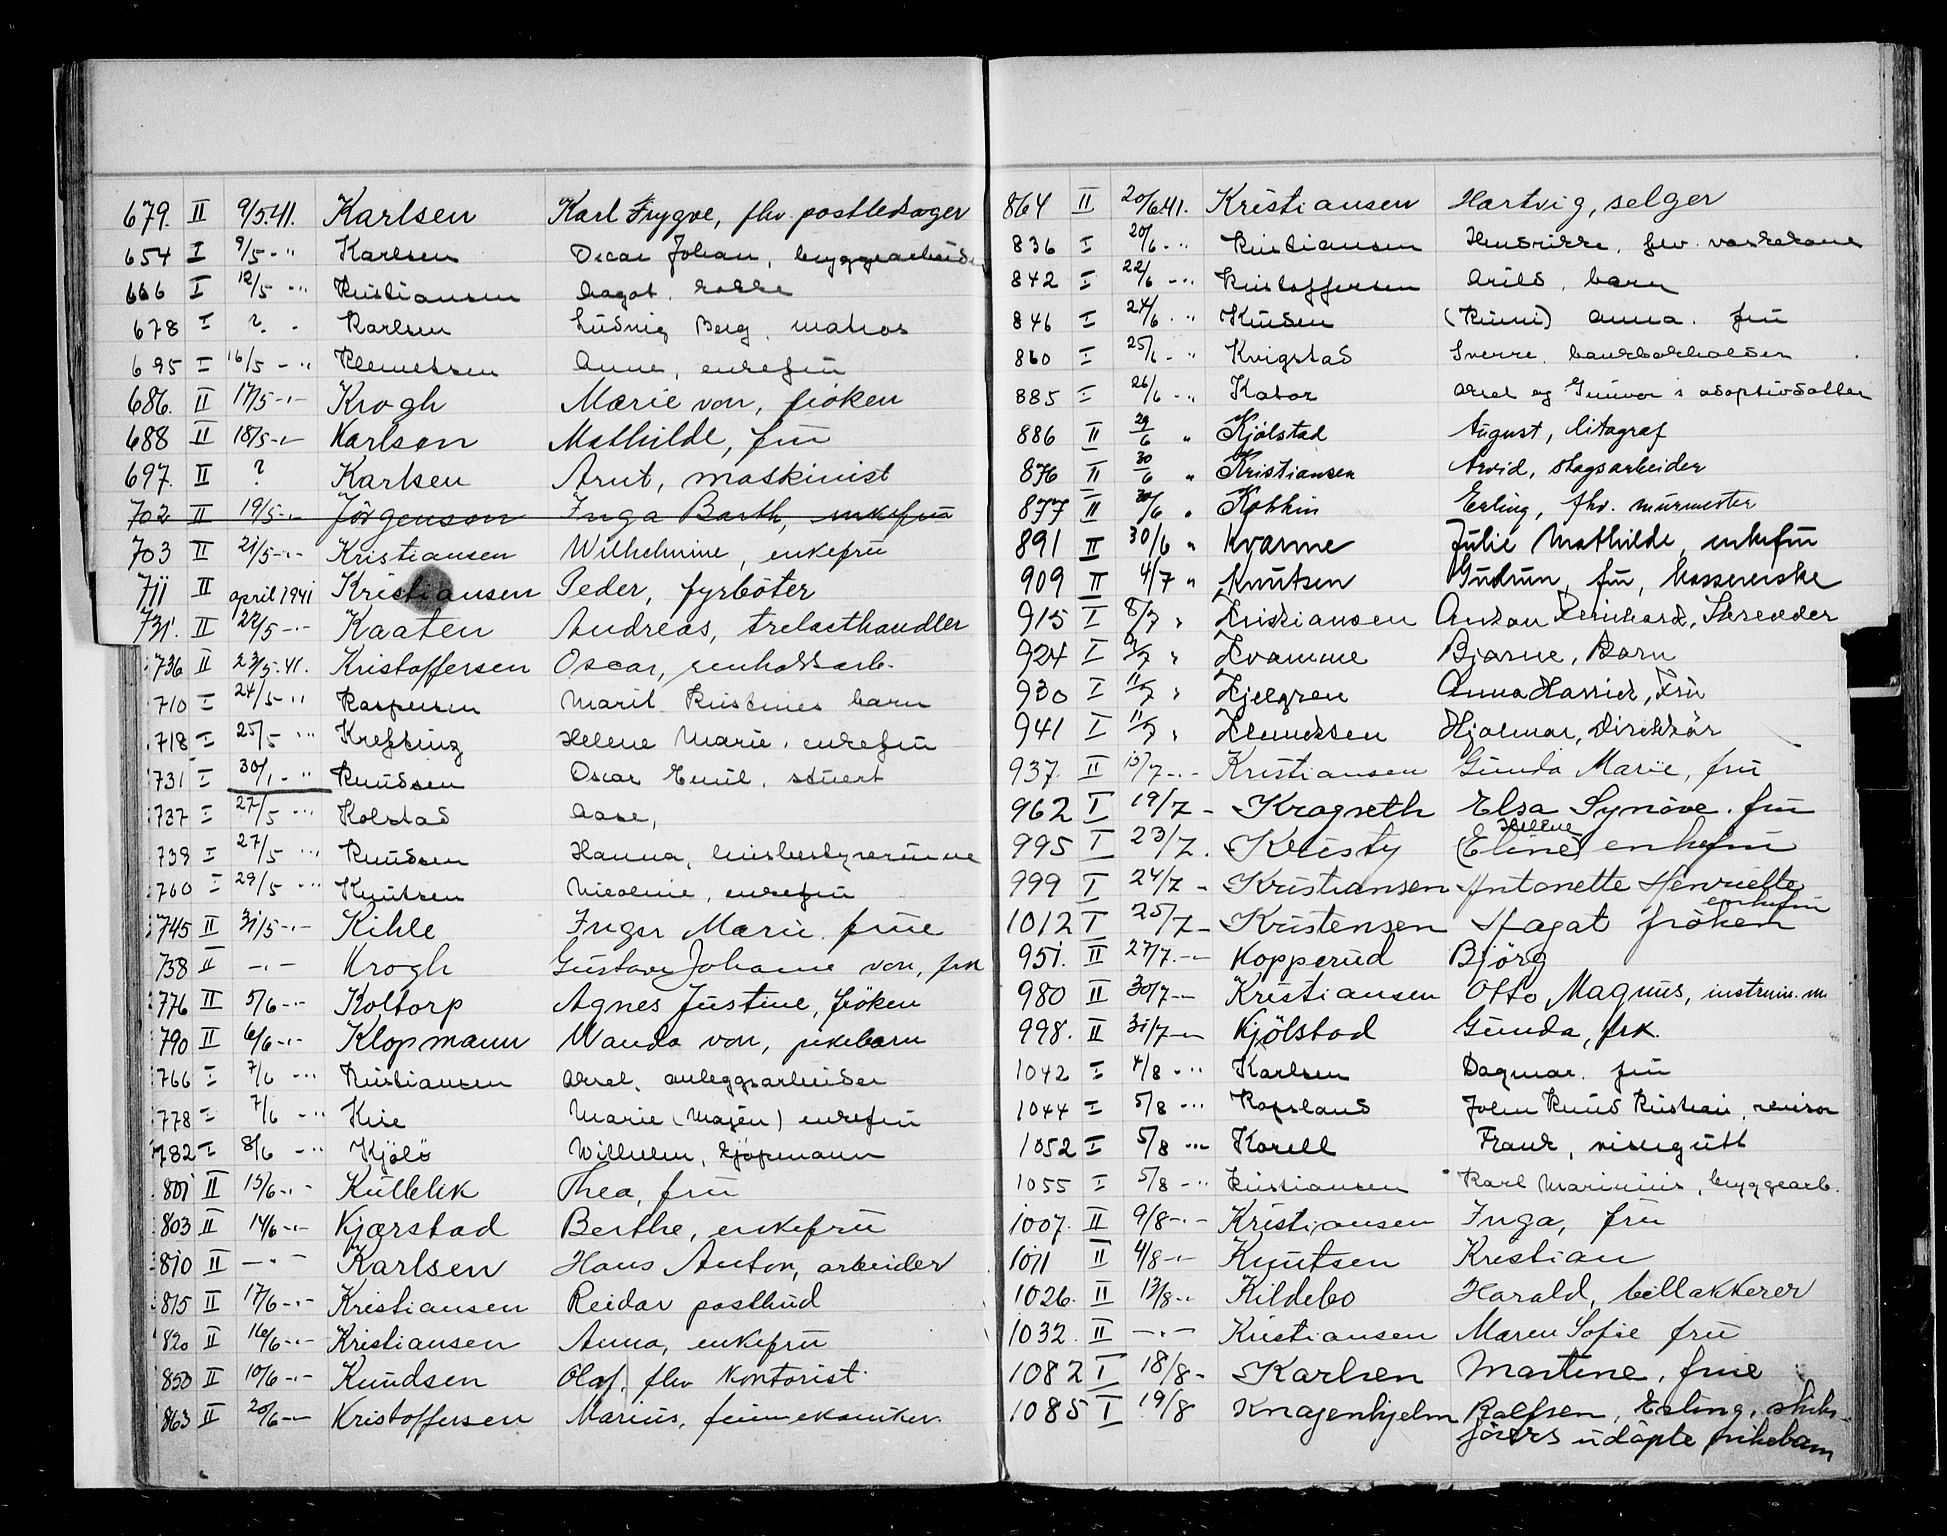 679. II 9/5.41. Karlsen Karl Trygve, fhv. postledsager
654 I 9/5 - " Karlsen Oscar Johan, bryggearbeider
666 I 12/5 - " Kristiansen Aagot. kokke
678 I ? - Karlsen Ludvig Berg, matros
695 I 16/5 - " Klemetsen Anne, enkefru
686. II 17/5 -"- Krogh Marie von, fröken
688 II 18/5 -"- Karlsen Mathilde, fru
697. II ? Karlsen Arnt, maskinist
702 II 19/5 -"- Jörgensen Inga Barth, enkefru
703 II 21/5 -"- Kristiansen Wilhelmine, enkefru
711 II april 1941 Kristiansen Peder, fyrböter
731. II 22/5 -"- Kaaten Andreas, trelasthandler
736 II 23/5.41. Kristoffersen Oscar, renholdsarb.
710 I 24/5 - " Kaspersen Marit Kristines barn
718 I 25/5 " Krefting Helene Marie, enkefru
731 I 30/1 - " Knudsen Oscar Emil, stuert
737 I 27/5 - " Kolstad Aase,
739 I 27/5 - " Knudsen Hanna, husbestyrerinne
760 I 29/5 - " Knutsen Nicoline, enkefru
745 II 31/5 -"- Kihle Inger Marie frue
738 II -"- Krogh Gustava Johanne von, frk
776 II 5/6 -"- Koltorp Agnes Justine, fröken
790 II 6/6 -"- Klopmann Wanda von, pikebarn
766 I 7/6 - " Kristiansen Aksel, anleggsarbeider
778 I 7/6 - " Kise Marie (Majen) enkefru
782 I 8/6 - " Kjölö Wilhelm, kjöpmann
801 II 13/6 -"- Kullbk Thea, fru
803 II 14/6 -"- Kjærstad Berthe, enkefru
810 II -"- Karlsen Hans Anton, arbeider
815 II 17/6 -"- Kristiansen Reidar postbud
820 II 16/6 -"- Kristiansen Anna, enkefru
850 II 10/6 -"- Knudsen Olaf, fhv kontorist.
863 II 20/6 -"- Kristoffersen Marius, finmekaniker
864 II 20/6.41. Kristiansen Hartvig, selger
836 I 20/6 - " Kristiansen Hendrikke, fhv. vaskekone
842 I 22/6 - " Kristoffersen Arild, barn
846 I 24/6 " Knudsen (Rumi) Anna. fru
860 I 25/6 - " Kvigstad Sverre, bankbokholder
885 I 26/6 - " Kator Aksel og Gunvor s adoptivdatter
886 II 29/6 " Kjölstad August, litograf
876 II 30/6 " Kristiansen Arvid, skogsarbeider
877 II 30/6 " Kobkin Erling, fhv. murmester
891 II 30/6 " Kvarme Julie Mathilde, enkefru
909 II 4/7 " Knutsen Gudrun, fru, kassererske
915 I 8/7 " Kristiansen Anton Reinhard, Skredder
924 I 9/7 " Kvamme Bjarne, Barn
930 I 11/7 " Kjelgren Anna Harriet, Fru
941 I 11/7 " Klemetsen Hjalmar, Direktör
937. II 15/7 -"- Kristiansen Gunda Marie, fru
962 I 19/7 - Kragseth Elsa Synöve. fru
Helene
995 I 23/7. Kristy (Eline) enkefru
999 I 24/7 - Kristiansen Antonette Henriette
enkefru
1012 I 25/7 - Kristensen Aagat fröken
951. II 27/7. -"- Kopperud Björg
980 II 30/7 -"- Kristiansen Otto Magnus, instrum. m.
998. II 31/7 -"- Kjölstad Gunda, frk.
1042 I 4/8 - " Karlsen Dagmar. fru
1044 I 5/8 - " Kopsland John Knud Kristian, revisor
1052 I 5/8 - " Korell Frank, visergutt
1055 I 5/8 - " Kristiansen Karl Marinius, bryggearb.
1007. II 9/8 -"- Kristiansen Inga, fru
1011 II 4/8 -"- Knutsen Kristian
1026. II 13/8 -"- Kildebo Harald, billakkerer
1032. II -"- Kristiansen Maren Sofie fru
1082 I 18/8 - Karlsen Martine, frue
1085 I 19/8 Knagenhjelm Rolfsen, Erling, skibs-
förers udöpte pikebarn